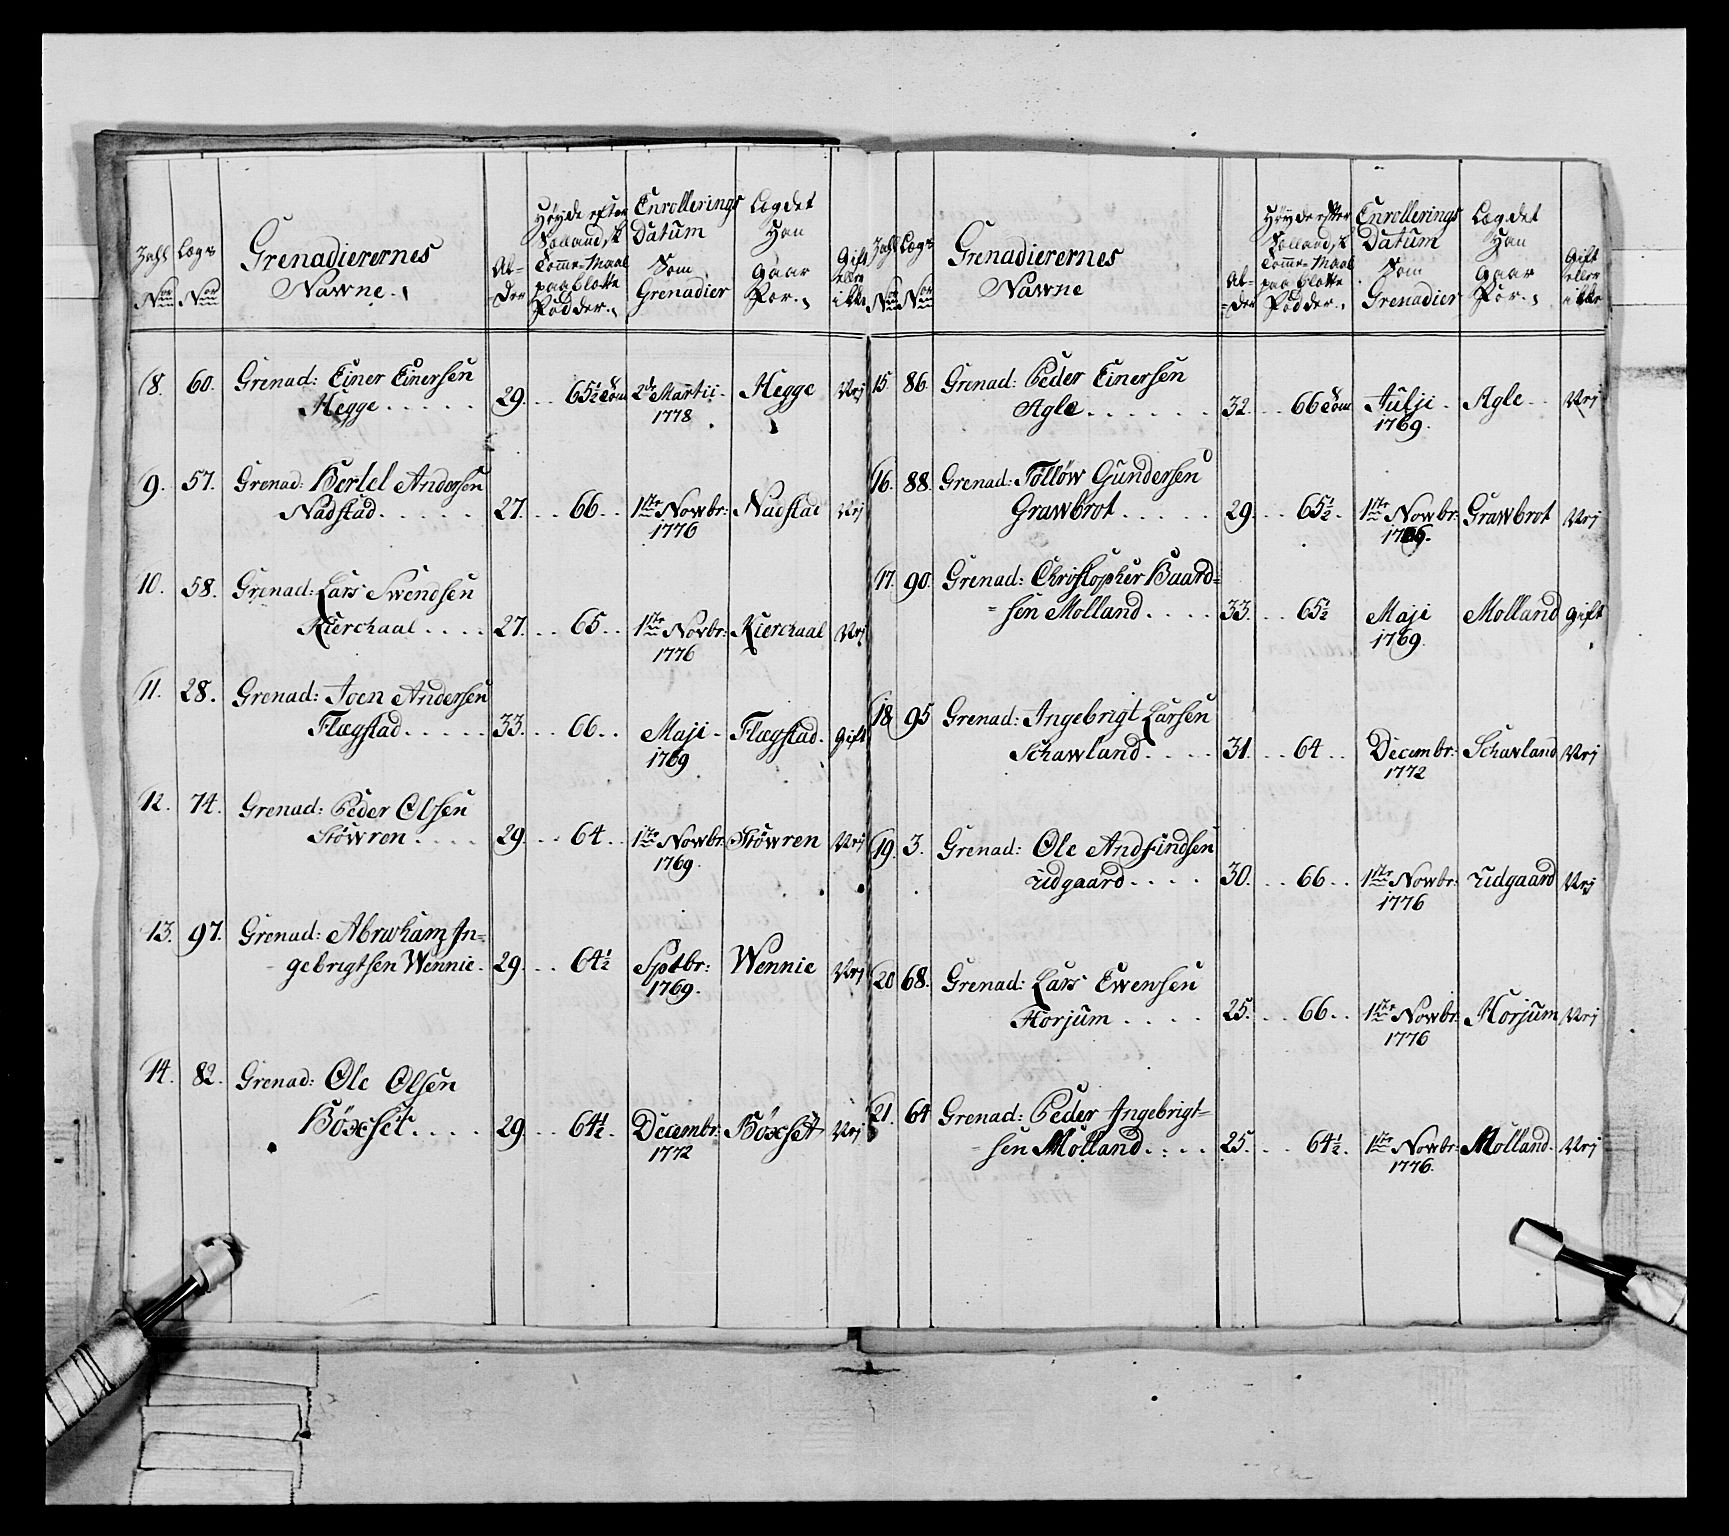 Zahl Nom
Lægs Nom
Grenadierernes
Nawne.
Al-
der
Høyde efter
Sællandsk
Tomme-Maal
paa blotte
Fødder.
Enrollerings
Datum
Som
Grenadier
Lægdet
Han
gaar
For.
Gift
eller
ikke
8. 60. Grenad: Einer Einersen
Hegge . . . . . 29. . . 65½ Tom 2de Martii. Hegge Vrj
1778
9. 57. Grenad: Bertel Andersen
Nadstad . . . . . 27. . . 66 . . 1ste Nowbr: Nadstad Vrj
1776
10. 58. Grenad: Lars Swendsen
Kierckaal . . . . 27. . . 65 . . 1ste Novbr: Kierckaal Vrj
1776
11. 28. Grenad: Joen Andersen
Flægstad . . . . . 33. . . 66 . . Maji Flægstad. Gift
1769
12. 74. Grenad: Peder Olsen
Stöwren . . . . 29. . . 64 . . 1ste Nowbr Stöwren Vrj
1769.
13. 97. Grenad: Abraham In-
gebrigtsen Wennie. 29. . . 64½ Sptbr: Wennie Vrj
1769.
14. 82. Grenad: Ole Olsen
Böxset . . . . 29. . . 64½. Decembr: Böxset Vrj
1772
Zahl Nom
Lægs Nom
Grenadierernes
Nawne
Al-
der
Høyde efter
Sællandsk
Tomme-Maal
paa blotte
Fødder.
Enrollerings
Datum
Som
Grenadier
Lægdet
Han
gaar
For.
Gift
eller
ikke
15. 86. Grenad: Peder Einersen
Agle . . . . . . 32. . . 66 Tom Julji . Agle . . Vrj
1769.
16. 88. Grenad: Föllöw Gundersen
Grawbrot . . . . . 29. . . 65½. 1ste Nowbr: Grawbrot Vrj
17. 90. Grenad: Christopher Baard=
=sen Molland . . . . 33. . . 65½ Maji Molland Gift
1769.
18. 95 Grenad: Ingebrigt Larsen
Schawland . . . . 31. . . 64 . . Decembr: Schavland Vrj
1772
19. 3. Grenad: Ole Andfindsen
Udgaard . . . . 30. . . 66 . . 1ste Nowbr: Udgaard Vrj
1776
20 68. Grenad: Lars Ewensen
Horjum . . . . 25. . . 66 . . 1ste Nowbr: Horjum Vrj
1776
21. 64 Grenad: Peder Ingebrigt=
=sen Molland . . . . 25. . . 64½. 1ste Nowbr: Molland. Vrj
1776.